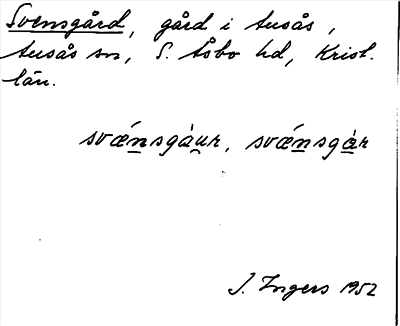 Svensgård, gård i Ausås,
Ausås sn, S. Åsbo hd, Krist.
län.
svǽnsgàu̯r, svǽnsgàr
I. Ingers 1952